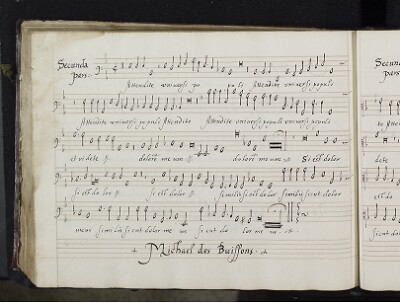 Secunda
pars.
Attendite universi po puli Attendite universi populi
Attendite universi populi Attendite universi populi universi populi
et videte dolorem meum dolorem meum Si est dolor
si est dolor si est dolor similis si est dolor similis sicut dolor
meus similis sicut dolor me us sicut do lor me us.
Michael des Buissons.
Secund
pars
dete
est do
sicut do